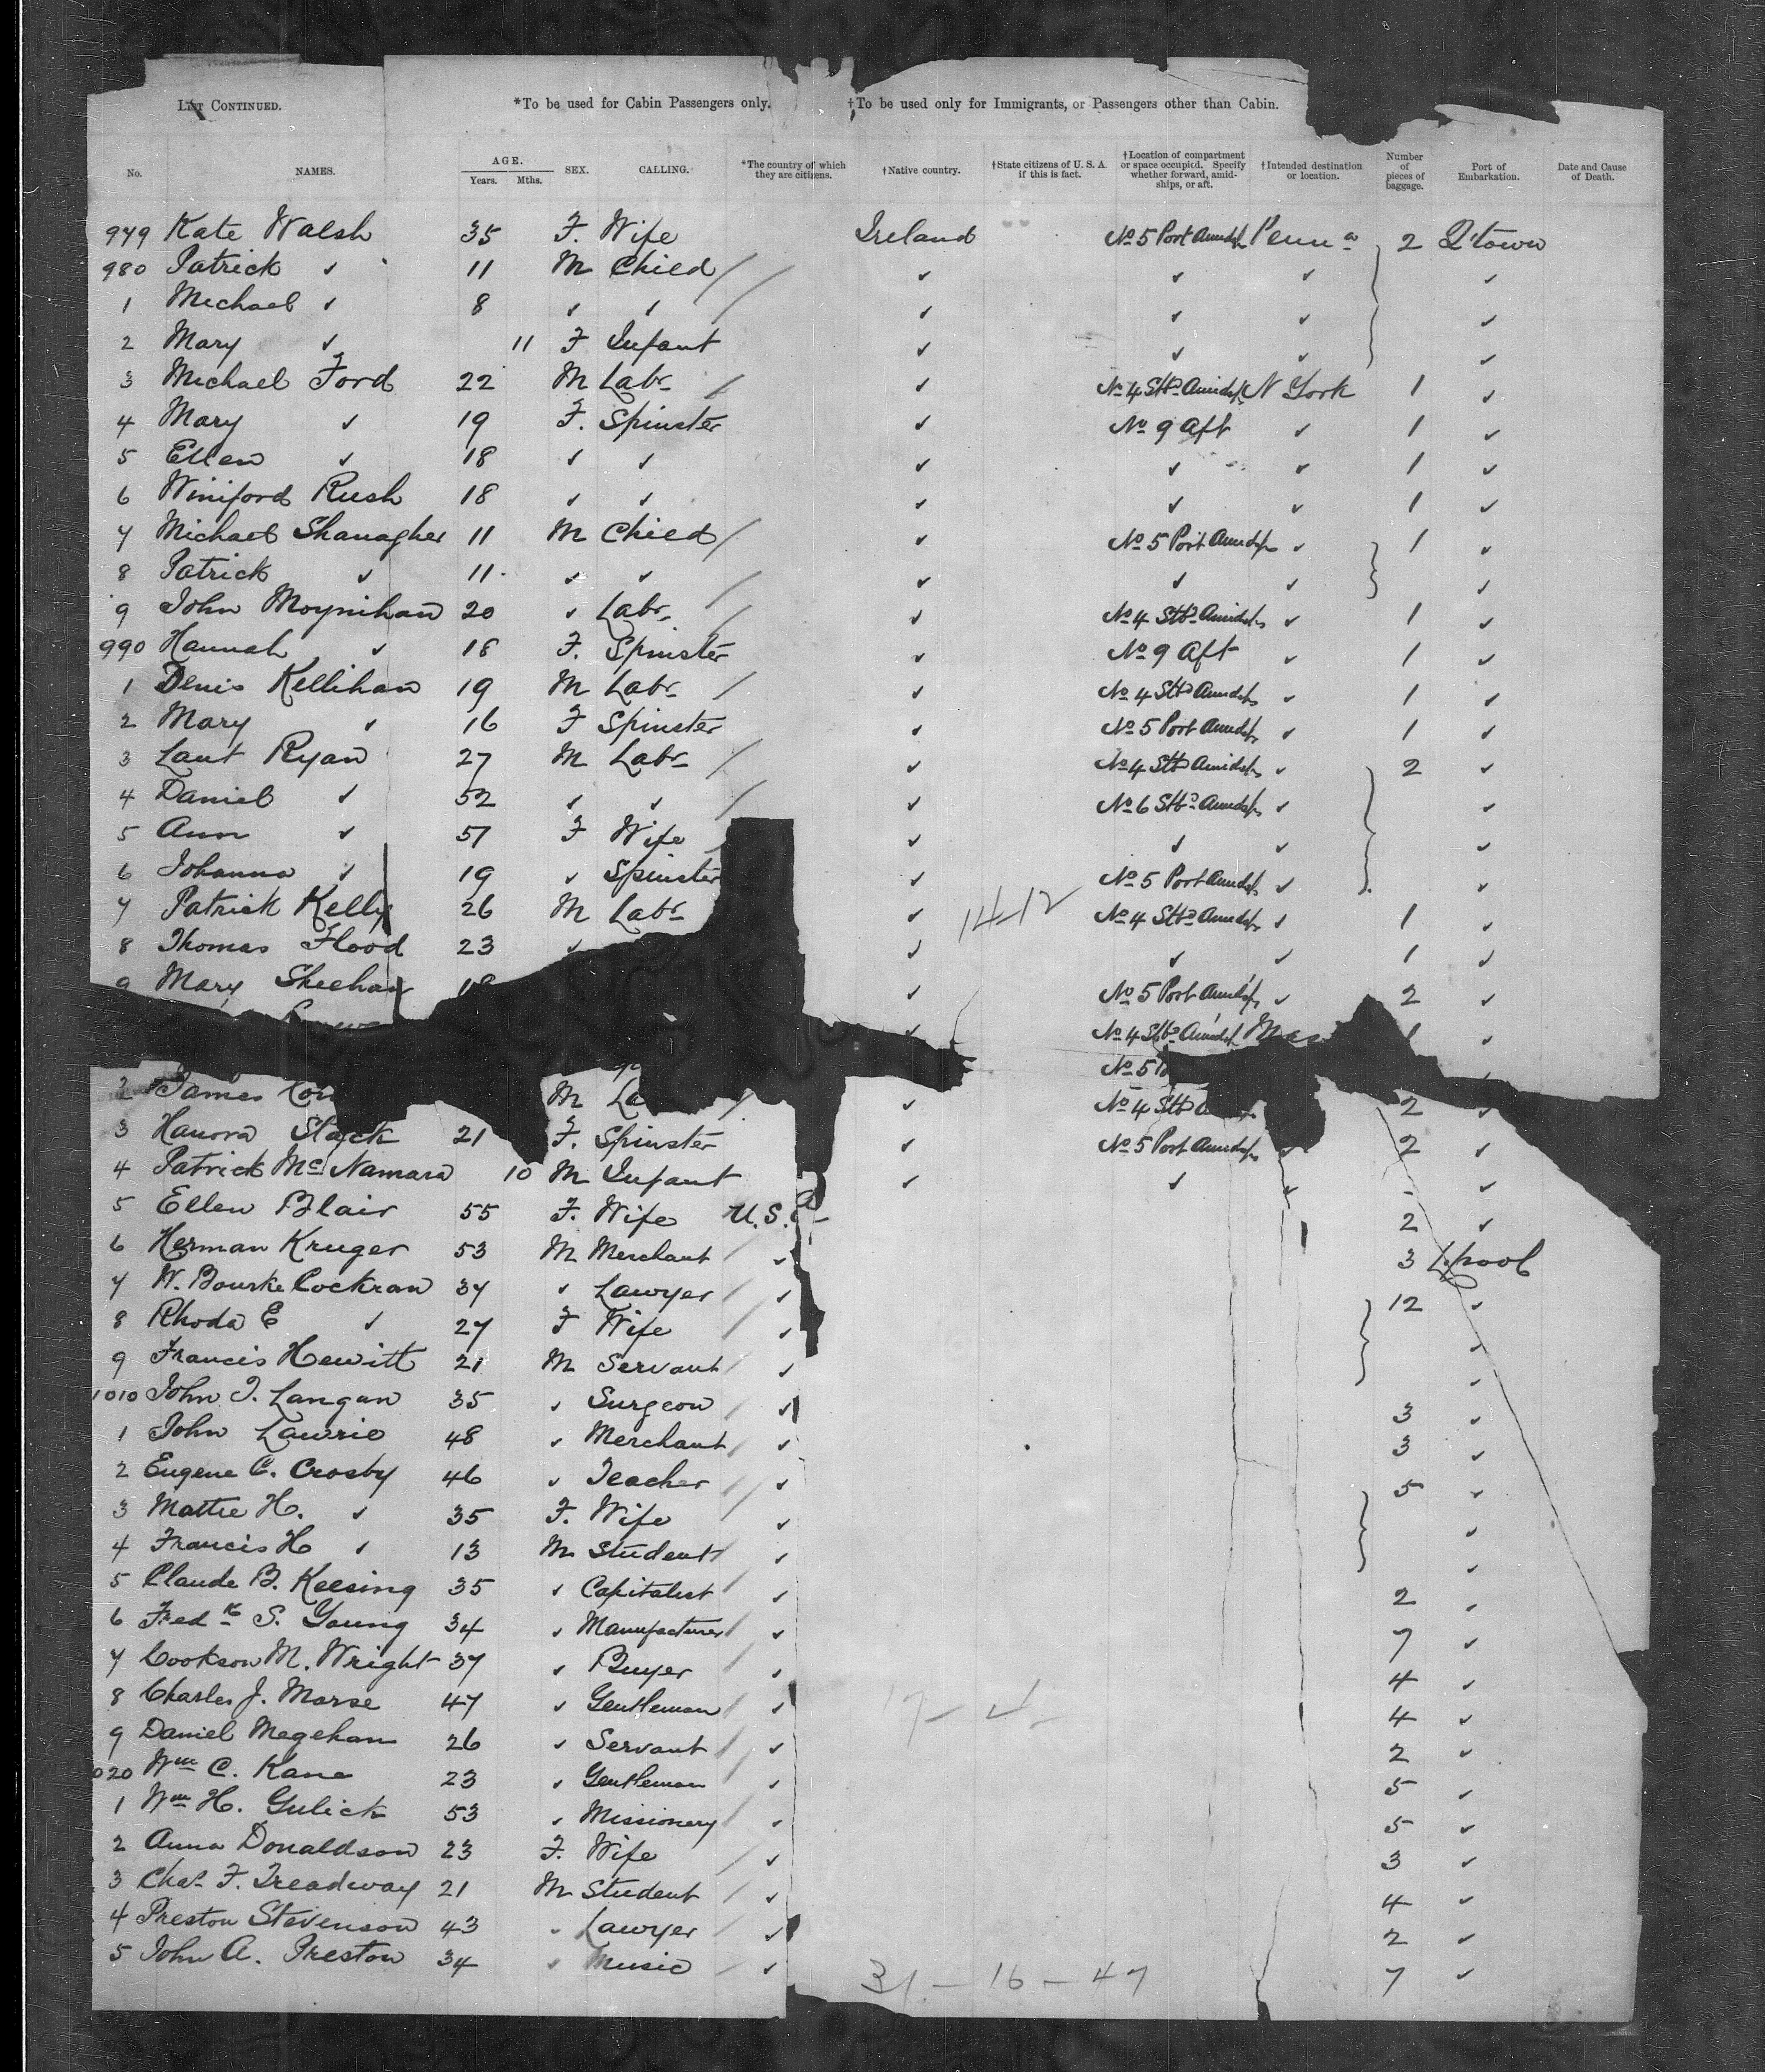 LIST CONTINUED. *To be used for Cabin Passengers only. †To be used only for Immigrants, or Passengers other than Cabin.
No. NAMES. AGE. Years. Mths. SEX. CALLING. *The country of which they are citizens. †Native country. †State citizens of U. S. A. if this is fact. †Location of compartment or space occupied. Specify whether forward, amidships, or aft. †Intended destination or location. Number of pieces of baggage. Port of Embarkation. Date and Cause of Death.
979 Kate Walsh 35 F. Wife Ireland No 5 Port Amidsps Penna 2 Q'town
980 Patrick ✓ 11 M Child ✓ ✓ ✓ ✓
1 Michael ✓ 8 ✓ ✓ ✓ ✓ ✓ ✓
2 Mary ✓ 11 F Infant ✓ ✓ ✓ ✓
3 Michael Ford 22 M Labr ✓ No 4 Stbd Amidsps N York 1 ✓
4 Mary ✓ 19 F. Spinster ✓ No 9 Aft ✓ 1 ✓
5 Ellen ✓ 18 ✓ ✓ ✓ ✓ ✓ 1 ✓
6 Winiford Rush 18 ✓ ✓ ✓ ✓ ✓ 1 ✓
7 Michael Shanagher 11 M Child ✓ No 5 Port Amidsps ✓ 1 ✓
8 Patrick ✓ 11 ✓ ✓ ✓ ✓ ✓ ✓
9 John Moynihan 20 ✓ Labr ✓ No 4 Stbd Amidsps ✓ 1 ✓
990 Hannah ✓ 18 F. Spinster ✓ No 9 Aft ✓ 1 ✓
1 Denis Kellihan 19 M Labr ✓ No 4 Stbd Amidsps ✓ 1 ✓
2 Mary ✓ 16 F Spinster ✓ No 5 Port Amidsps ✓ 1 ✓
3 Laut Ryan 27 M Labr ✓ No 4 Stbd Amidsps ✓ 2 ✓
4 Daniel ✓ 52 ✓ ✓ ✓ No 6 Stbd Amidsps ✓ ✓
5 Ann ✓ 57 F Wife ✓ ✓ ✓ ✓
6 Johanna ✓ 19 ✓ Spinster ✓ No 5 Port Amidsps ✓ ✓
7 Patrick Kelly 26 M Labr ✓ 14-12 No 4 Stbd Amidsps ✓ 1 ✓
8 Thomas Flood 23 ✓ ✓ ✓ ✓ 1 ✓
9 Mary Sheehan 18 ✓ No 5 Port Amidsps ✓ 2 ✓
✓ No 4 Stbd Amidsps 1 ✓
No 5
2 James M ✓ No 4 Stbd 2 ✓
3 Hanora Stack 21 F. Spinster ✓ No 5 Port Amidsps ✓ 2 ✓
4 Patrick McNamara 10 M Infant ✓ ✓ ✓ - ✓
5 Ellen Blair 55 F. Wife U.S.A 2 ✓
6 Herman Kruger 53 M Merchant ✓ 3 L.pool
7 W. Bourke Cockran 37 ✓ Lawyer ✓ 12 ✓
8 Rhoda E ✓ 27 F Wife ✓ ✓
9 Francis Hewitt 21 M Servant ✓ ✓
1010 John J. Langan 35 ✓ Surgeon ✓ 3 ✓
1 John Lawrie 48 ✓ Merchant ✓ 3 ✓
2 Eugene C. Crosby 46 ✓ Teacher ✓ 5 ✓
3 Mattie H. ✓ 35 F. Wife ✓ ✓
4 Francis H ✓ 13 M Student ✓ ✓
5 Claude B. Keesing 35 ✓ Capitalist ✓ 2 ✓
6 Fredk S. Young 34 ✓ Manufacturer ✓ 7 ✓
7 Cookson M. Wright 37 ✓ Buyer ✓ 4 ✓
8 Charles J. Morse 47 ✓ Gentleman ✓ 4 ✓
9 Daniel Megehan 26 ✓ Servant ✓ 2 ✓
020 Wm C. Kane 23 ✓ Gentleman ✓ 5 ✓
1 Wm H. Gulick 53 ✓ Missionery ✓ 5 ✓
2 Anna Donaldson 23 F. Wife ✓ 3 ✓
3 Chas F. Treadway 21 M Student ✓ 4 ✓
4 Preston Stevenson 43 ✓ Lawyer ✓ 2 ✓
5 John A. Preston 34 ✓ Music ✓ 7 ✓
31 - 16 - 47